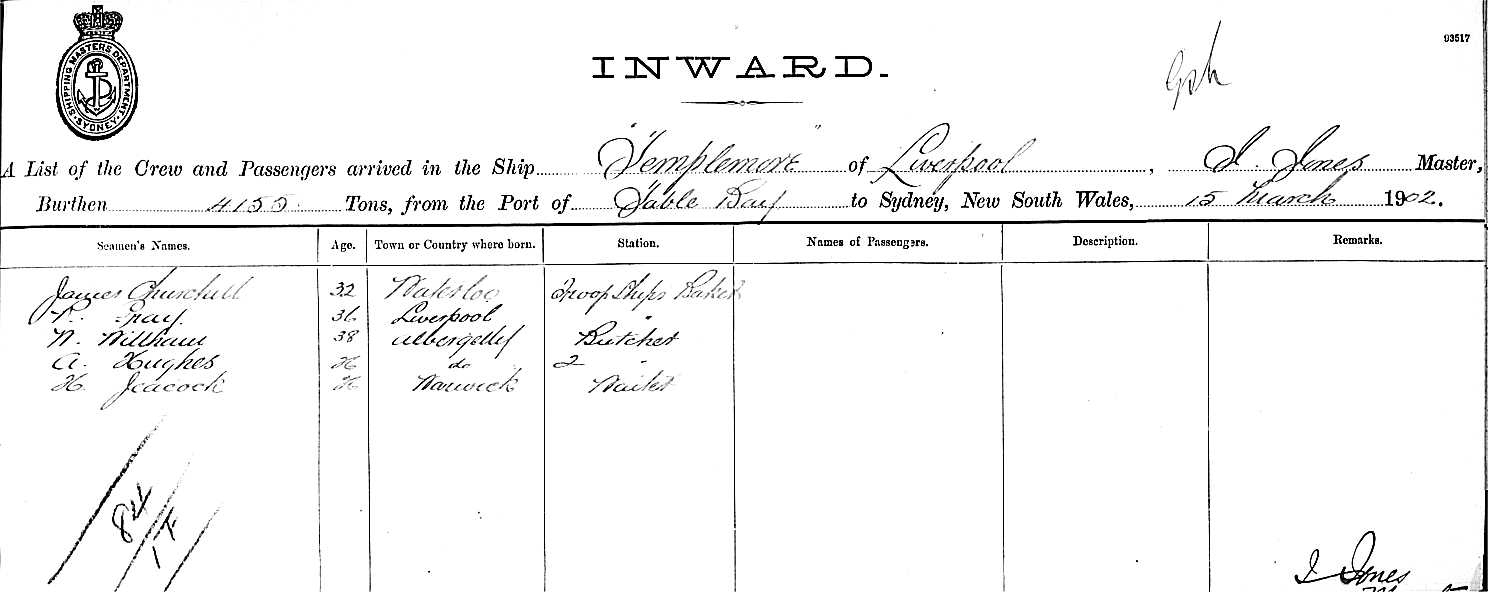 SHIPPING MASTERS DEPARTMENT · SYDNEY ·
93517
INWARD.
A List of the Crew and Passengers arrived in the Ship "Templemore" of Liverpool, I. Jones Master,
Burthen 4155 Tons, from the Port of Table Bay to Sydney, New South Wales, 15 March 1902.
Seamen's Names. Age. Town or Country where born. Station. Names of Passengers. Description. Remarks.
James Churchill 32 Waterloo Troop Ships Baker
R. Gray 36 Liverpool "
W. William 38 Abergelly Butcher
A. Hughes 26 do 2 "
H. Jeacock 26 Warwick Waiter
84
1
I Jones